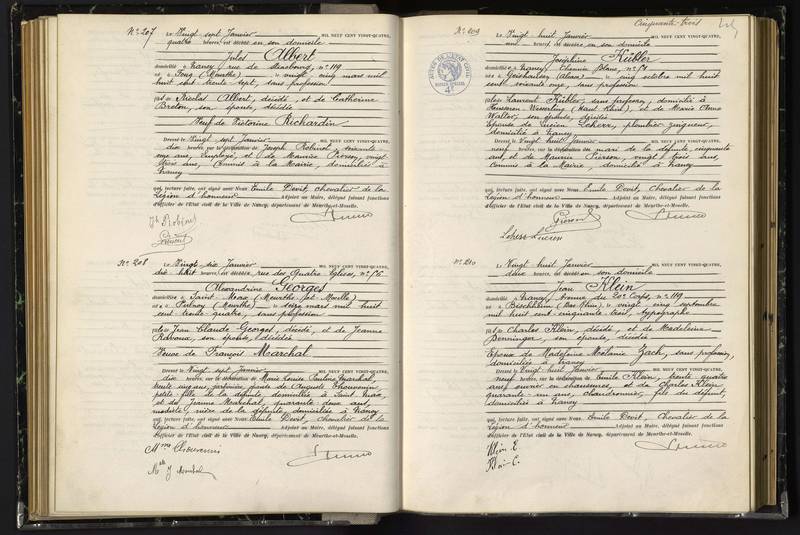 N° 207
Le Vingt sept Janvier MIL NEUF CENT VINGT-QUATRE,
quatre heures est décédé en son domicile
Jules Albert
domicilié à Nancy, rue de Strasbourg, n° 119
né à Foug (Meurthe) le vingt cinq mars mil
huit cent trente sept, sans profession
fils de Nicolas Albert, décédé, et de Catherine
Breton, son épouse, décédée
Veuf de Victorine Richardin
Dressé le Vingt sept Janvier MIL NEUF CENT VINGT-QUATRE,
dix heures, sur la déclaration de Joseph Robinot, soixante
ans, employé, et de Maurice Pierson, vingt
trois ans, Commis à la Mairie, domiciliés à
Nancy
qui, lecture faite, ont signé avec Nous Emile Devit, chevalier de la
Légion d'honneur Adjoint au Maire, délégué faisant fonctions
d'officier de l'Etat civil de la Ville de Nancy, département de Meurthe-et-Moselle.
N° 208
Le Vingt six Janvier MIL NEUF CENT VINGT-QUATRE,
dix huit heures est décédée rue des Quatre Eglises, n° 56
Alexandrine Georges
domiciliée à Saint Max (Meurthe et Moselle)
née à Pulnoy (Meurthe) le seize mars mil huit
cent trente quatre, sans profession
fille de Jean Claude Georges, décédé, et de Jeanne
son épouse, décédée
Veuve de François Marchal
Dressé le Vingt sept Janvier MIL NEUF CENT VINGT-QUATRE,
dix heures, sur la déclaration de Marie Louise Pauline Marchal,
trente cinq ans, épouse de Auguste Thouvenin,
petite fille de la défunte, domiciliée à Saint Max,
et de Jeanne Marchal, quarante deux ans,
modiste, nièce de la défunte, domiciliée à Nancy
qui, lecture faite, ont signé avec Nous Emile Devit, chevalier de la
Légion d'honneur Adjoint au Maire, délégué faisant fonctions
d'officier de l'Etat civil de la Ville de Nancy, département de Meurthe-et-Moselle.
Mme Thouvenin
Mlle J Marchal
Cinquante-trois
N° 209
Le Vingt huit Janvier MIL NEUF CENT VINGT-QUATRE,
heures est décédée en son domicile
Joséphine Kübler
domiciliée à Nancy, Chemin Blanc, n° 50
née à Geishausen (Alsace) le cinq octobre mil huit
cent soixante onze, sans profession
fille de Laurent Kübler, sans profession, domicilié à
Husseren Wesserling (Haut Rhin), et de Marie Anne
Walter, son épouse, décédée
Epouse de Lucien Leherr, plombier zingueur,
domicilié à Nancy
Dressé le Vingt huit Janvier MIL NEUF CENT VINGT-QUATRE,
neuf heures, sur la déclaration du mari de la défunte, cinquante
ans, et de Maurice Pierson, vingt trois ans,
commis à la Mairie, domicilié à Nancy
qui, lecture faite, ont signé avec Nous Emile Devit, Chevalier de la
Légion d'honneur Adjoint au Maire, délégué faisant fonctions
d'officier de l'Etat civil de la Ville de Nancy, département de Meurthe-et-Moselle.
Leherr Lucien
N° 210
Le Vingt huit Janvier MIL NEUF CENT VINGT-QUATRE,
deux heures est décédé en son domicile
Jean Klein
domicilié à Nancy, avenue du 20e Corps, n° 119
né à Bischheim (Bas Rhin) le vingt cinq septembre
mil huit cent cinquante trois, typographe
fils de Charles Klein, décédé, et de Madeleine
Denninger, son épouse, décédée
Epoux de Madeleine Mélanie Zach, sans profession,
domiciliée à Nancy
Dressé le Vingt huit Janvier MIL NEUF CENT VINGT-QUATRE,
neuf heures, sur la déclaration de Emile Klein, trente quatre
ans, ouvrier en chaussures, et de Charles Klein
quarante un ans, chaudronnier, fils du défunt,
domiciliés à Nancy
qui, lecture faite, ont signé avec Nous Emile Devit, Chevalier de la
Légion d'honneur Adjoint au Maire, délégué faisant fonctions
d'officier de l'Etat civil de la Ville de Nancy, département de Meurthe-et-Moselle.
Klein E.
Klein C.